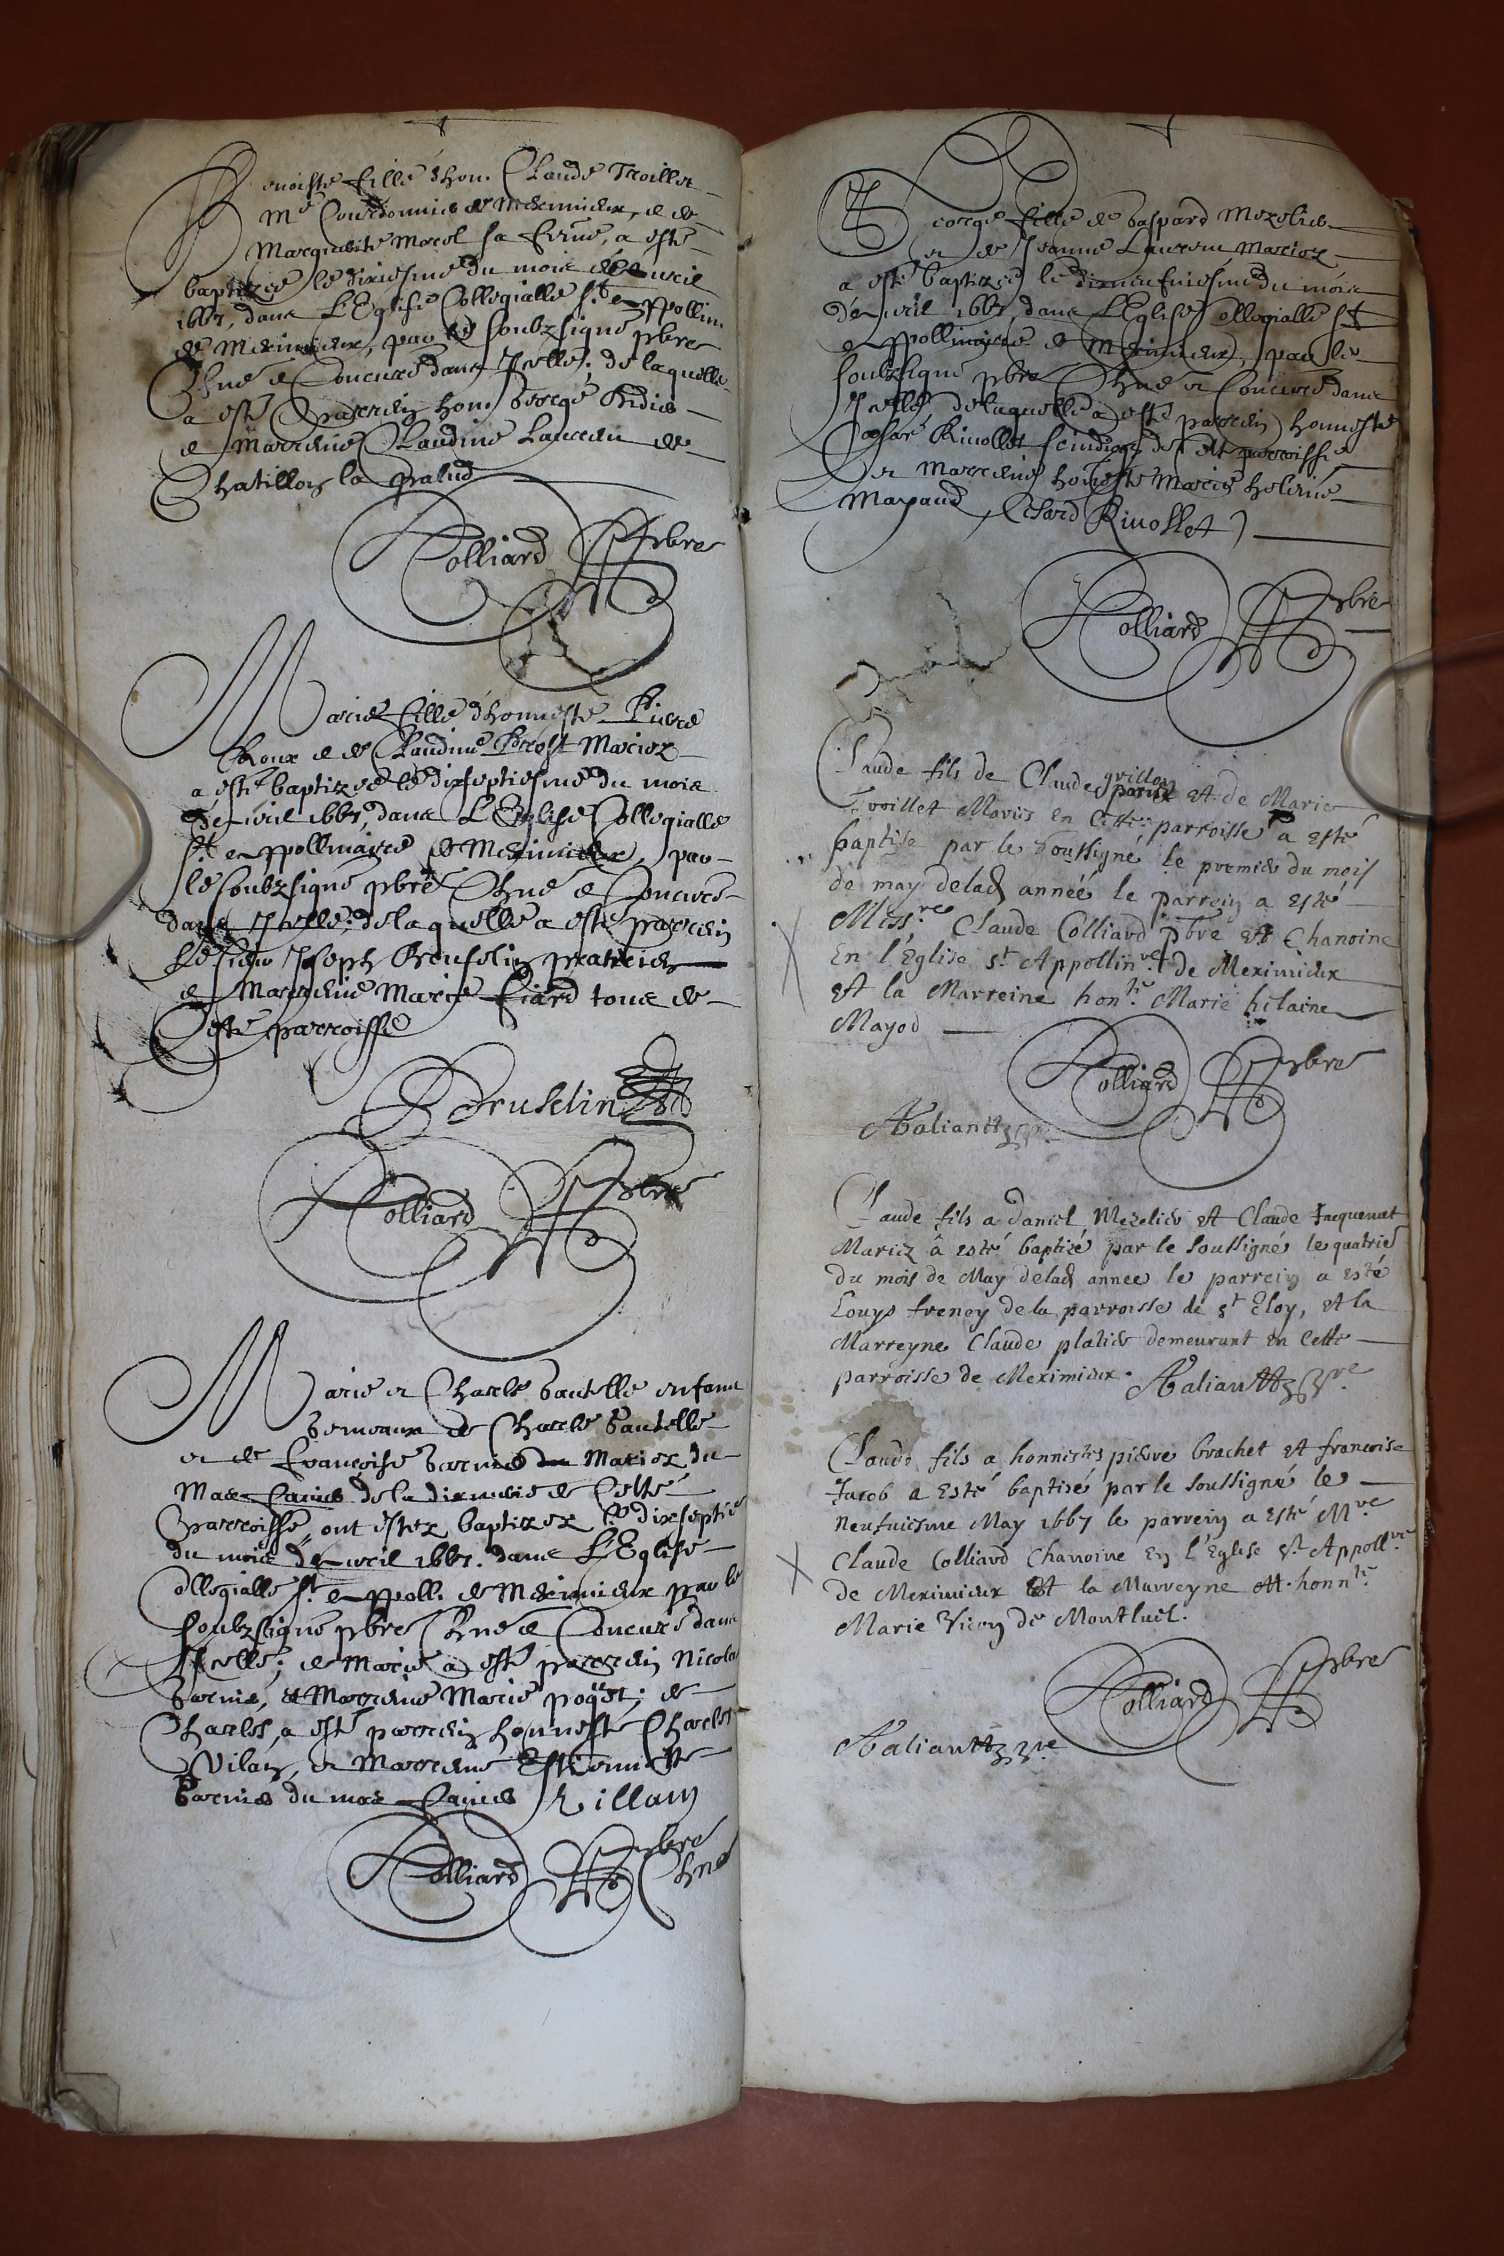 Benoiste fille d'hon. Claude Troillet
Me Courdonnier de Meximieux, e de
Marguerite Morel sa feme, a esté
baptizee le dixiesme du mois d'Avril
1667, dans L'Eglise Collegialle St Appolin.
de Meximieux, par le soubzsigné pbre
Chne e Concuré dans Icelle; de laquelle
a esté parrein hon. George Didier
e Marreine Claudine Laurent de
Chatillon la Palud
Colliard pbre
Marie fille d'honneste Pierre
Roux e de Claudine Prost Mariez
a esté baptizee le dixseptiesme du mois
d'Avril 1667, dans L'Eglise Collegialle
St Appollinaire de Meximieux, par
le soubzsigné pbre Chne e Concuré
dans Icelle; de laquelle a esté parrein
Le sieur Joseph Breuselin praticien
e Marreine Marie Fiard tous de
Ceste parroisse
Breuselin
Colliard pbre
Marie et Charle Gautelle enfans
Gemeaux de Charle Gautelle
et de Françoise Garnier Mariez du
Mas de la dixmerie de Ceste
parroisse, ont estez baptizez le dixseptie
du mois d'Avril 1667. dans L'Eglise
Collegialle St Appoll. de Meximieux par le
soubzsigné pbre Chne e Concuré dans
Icelle; de Marie a esté parrein Nicolas
Garnier, et Marreine Marie poget; de
Charles, a esté parrein honneste Charles
Vilan, et Marreine Estiennette
Garnier du mas Villam
Colliard pbre
Chne
George fille de Gaspard Mezelier
et de Jeanne Laurent Mariez
a esté baptizee le dixneufviesme du mois
d'Avril 1667, dans L'Eglise Collegialle St
Appollinaire de Meximieux, par le
soubzsigné pbre Chne et Concuré dans
Icelle, de laquelle a esté parrein honneste
Cesar Rivollet scindique de Cete parroisse
et Marreine honeste Marie helenne
Mayaud, Cesard Rivollet
Colliard pbre
Claude fils de Claude guillon et de Marie
Troillet Mariés en Cette parroisse a esté
baptise par le soussigné le premier du mois
de may deladt année le parrein a esté
Missre Claude Colliard pbre et Chanoine
En l'Eglise St Appollinre de Meximieux
et la Marreine honte Marie hilaine
Mayod
Colliard pbre
Aaliantz
Claude fils a daniel Mezelier et Claude Jacquemat
Mariez a esté baptizé par le soussigné le quatrie
du mois de May deladt annee le parrein a esté
Louys frenay de la parroisse de st Eloy, et la
Marreyne Claude platier demeurant en Cette
parroisse de Meximieux. Aaliantz
Claude fils a honnestes pierre brachet et francoise
Jacob a esté baptisé par le soussigné le
neufuiesme May 1667 le parrein a esté Mre
Claude Colliard Chanoine En l'Eglise St Appollre
de Meximieux et la Marreyne honnte
Marie Vien de Montluel.
Colliard pbre
Aaliantz